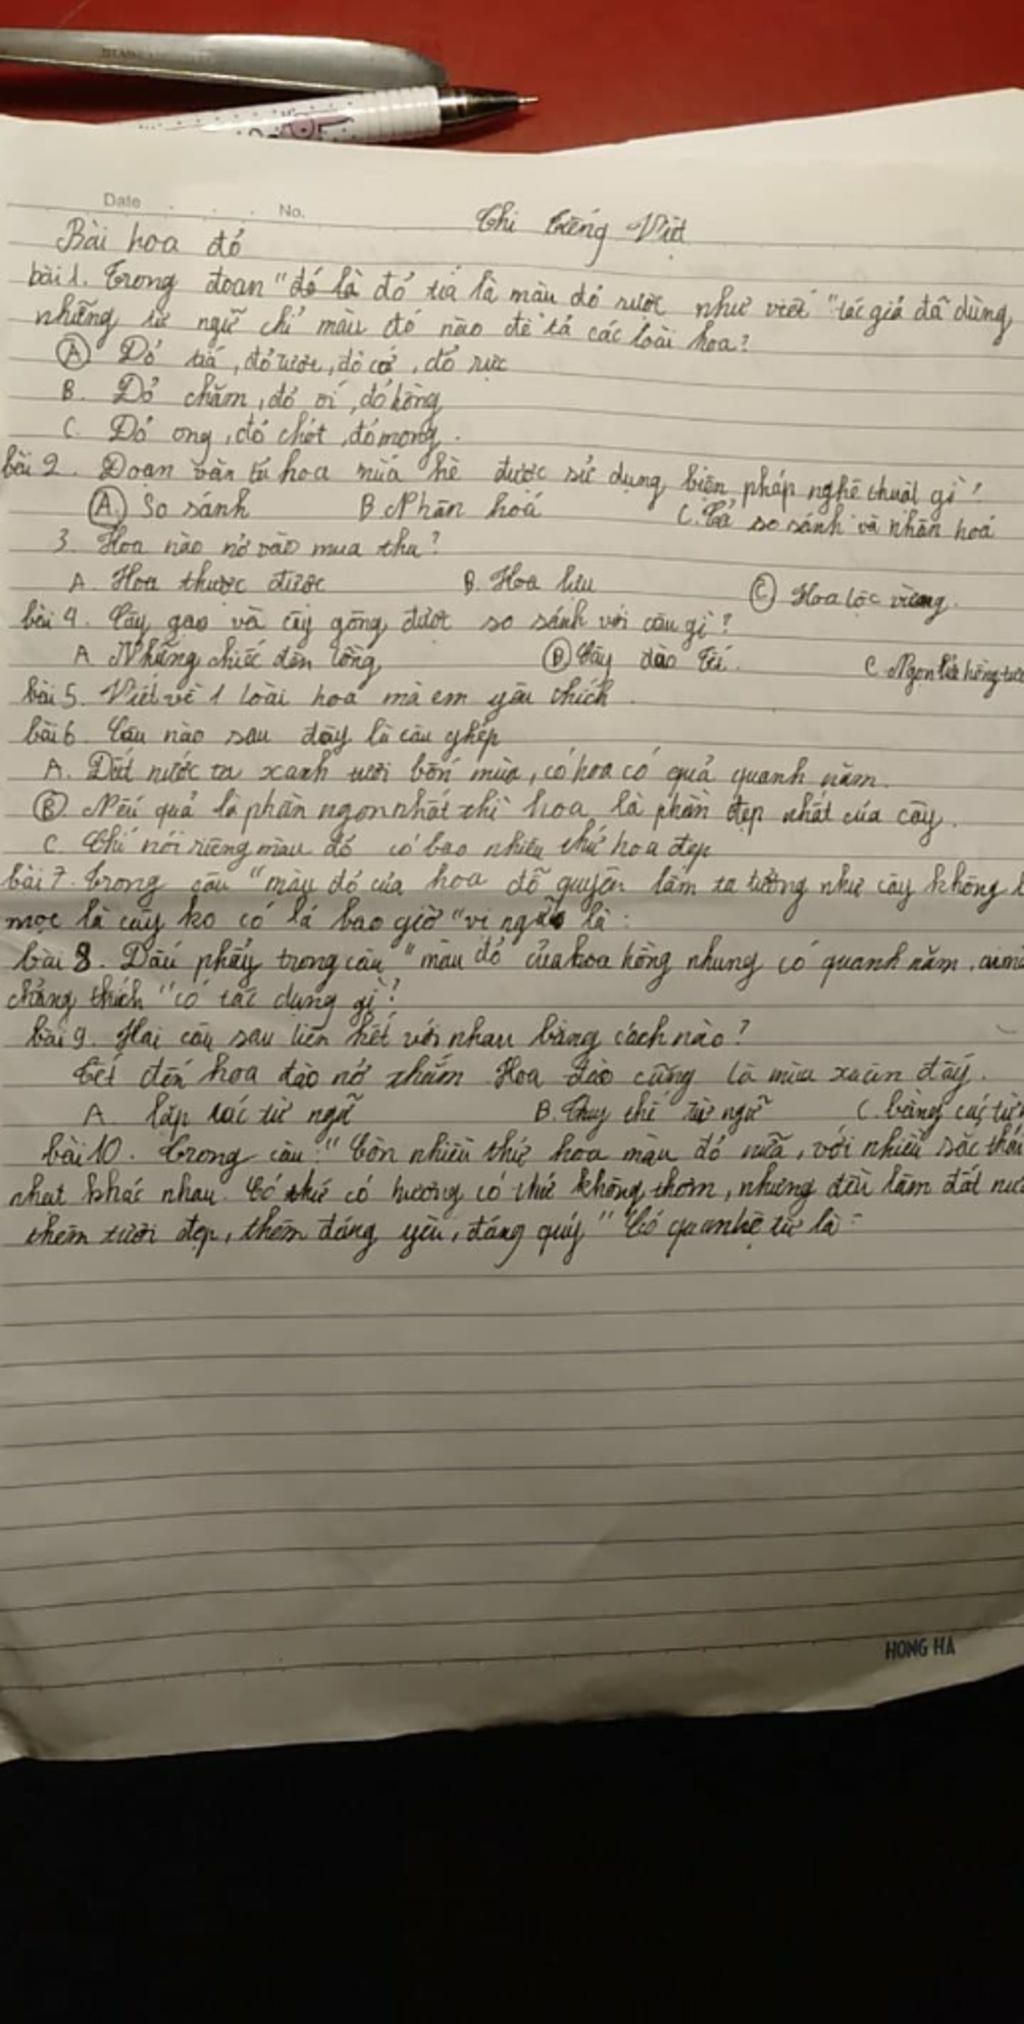 Date No.
Thi tiếng Việt
Bài hoa đỏ
bài 1. Trong đoạn "đó là đỏ tía là màu đỏ rười như viết" tác giả đã dùng
những từ ngữ chỉ màu đỏ nào để tả các loài hoa?
Ⓐ Đỏ tía, đỏ tươi, đỏ cờ, đỏ rực
B. Đỏ chăm, đỏ ối, đỏ hồng
C. Đỏ ong, đỏ chót, đỏ mọng.
bài 2. Đoạn văn tả hoa mùa hè được sử dụng biện pháp nghệ thuật gì?
Ⓐ So sánh B. Nhân hoá C. Cả so sánh và nhân hoá
3. Hoa nào nở vào mua thu?
A. Hoa thược dược B. Hoa lựu Ⓒ Hoa lộc vừng.
bài 4. Cây gạo và cây gông được so sánh với cái gì?
A. Những chiếc đèn lồng Ⓑ Cây đào Tết. C. Ngọn lửa hồng tươi
bài 5. Viết về 1 loài hoa mà em yêu thích.
bài 6. Câu nào sau đây là câu ghép
A. Đất nước ta xanh tươi bốn mùa, có hoa có quả quanh năm.
Ⓑ Nếu quả là phần ngon nhất thì hoa là phần đẹp nhất của cây.
C. Chỉ nói riêng màu đỏ có bao nhiêu thứ hoa đẹp
bài 7. Trong câu "màu đỏ của hoa đỗ quyên làm ta tưởng như cây không
mọc lá cây ko có lá bao giờ" vị ngữ là:
bài 8. Dấu phẩy trong câu "màu đỏ của hoa hồng nhung có quanh năm, ai mà
chẳng thích" có tác dụng gì?
bài 9. Hai câu sau liên kết với nhau bằng cách nào?
Tết đến hoa đào nở thắm. Hoa đào cũng là mùa xuân đấy.
A. lặp các từ ngữ B. Thay thế từ ngữ C. bằng các từ
bài 10. Trong câu: "Còn nhiều thứ hoa màu đỏ nữa, với nhiều sắc thái
nhạt khác nhau. Có thứ có hương có thứ không thơm, nhưng đều làm đất nước
thêm tươi đẹp, thêm đáng yêu, đáng quý" Có quan hệ từ là:
HONG HA